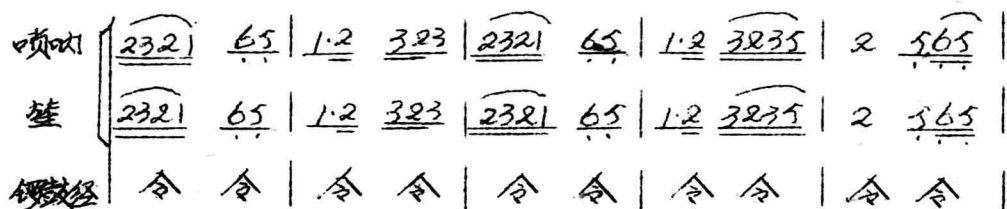 唢呐 2321 65 | 1·2 323 | 2321 65 | 1·2 3235 | 2 565 |
笙 2321 65 | 1·2 323 | 2321 65 | 1·2 3235 | 2 565 |
锣鼓经 令 令 | 令 令 | 令 令 | 令 令 | 令 令 |